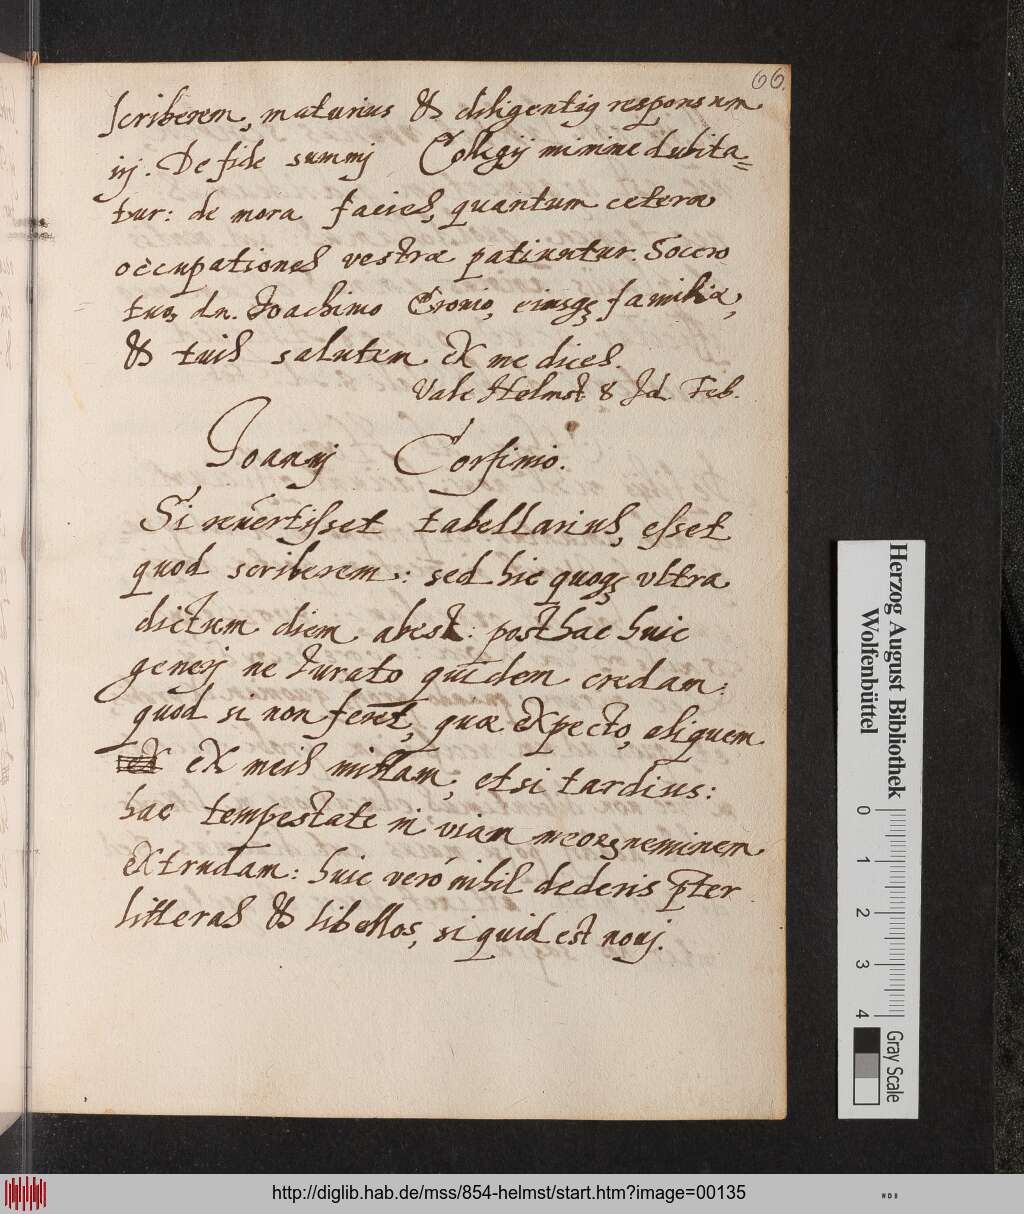 66.
scriberem, maturius & diligentiq responsum
irj. De fide summj Collegij minime dubita=
tur: de mora facies, quantum ceteræ
occupationes vestræ patiuntur. Socero
tuo, dn. Joachimo Cronio, eiusqȝ familiæ,
& tuis salutem ex me dices.
Vale Helmst 8 Id. Feb.
Joannj Corfinio.
Si reuertisset tabellarius, esset
quod scriberem: sed hic quoqȝ vltra
dictum diem abest: posthac huic
generj ne iurato quidem credam:
quod si non feret, quæ expecto, aliquem
ex meis mittam; etsi tardius:
hac tempestate in viam meorȝ neminem
extrudam: huic verò nihil dederis pter
litteras & libellos, si quid est nouj.
Herzog August Bibliothek
Wolfenbüttel
0 1 2 3 4
Gray Scale
http://diglib.hab.de/mss/854-helmst/start.htm?image=00135